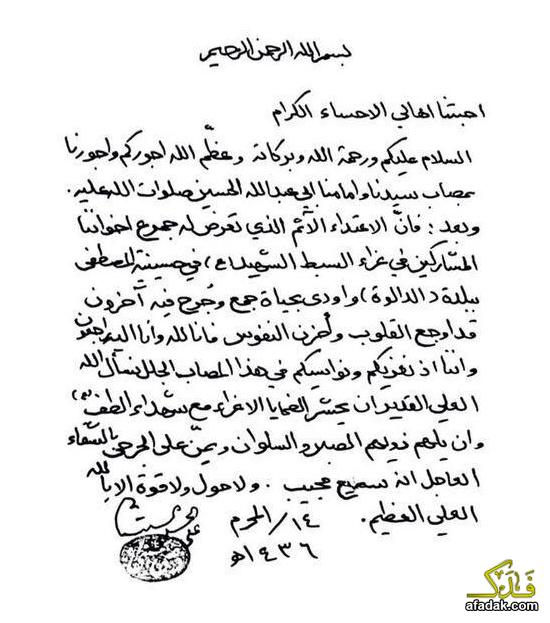 بسم الله الرحمن الرحيم
احبتنا اهالي الاحساء الكرام
السلام عليكم ورحمة الله وبركاته وعظّم الله اجوركم واجورنا
بمصاب سيدنا وامامنا ابي عبد الله الحسين صلوات الله عليه.
وبعد: فانّ الاعتداء الآثم الذي تعرض له جموع اخواننا
المشاركين في عزاء السبط الشهيد (ع) في حسينية المصطفى
ببلدة (الدالوة) واودى بحياة جمع وجُرح فيه آخرون
قد اوجع القلوب وأحزن النفوس فانا لله وانا اليه راجعون
واننا اذ نعزيكم ونواسيكم في هذا المصاب الجلل نسأل الله
العلي القدير ان يحشر الضحايا الاعزاء مع شهداء الطف (ع)
وان يلهم ذويهم الصبر والسلوان ويمنّ على الجرحى بالشفاء
العاجل انه سميع مجيب. ولا حول ولا قوة الا بالله
العلي العظيم. ١٤/المحرم
١٤٣٦هـ
علي الحسيني
فدك
afadak.com